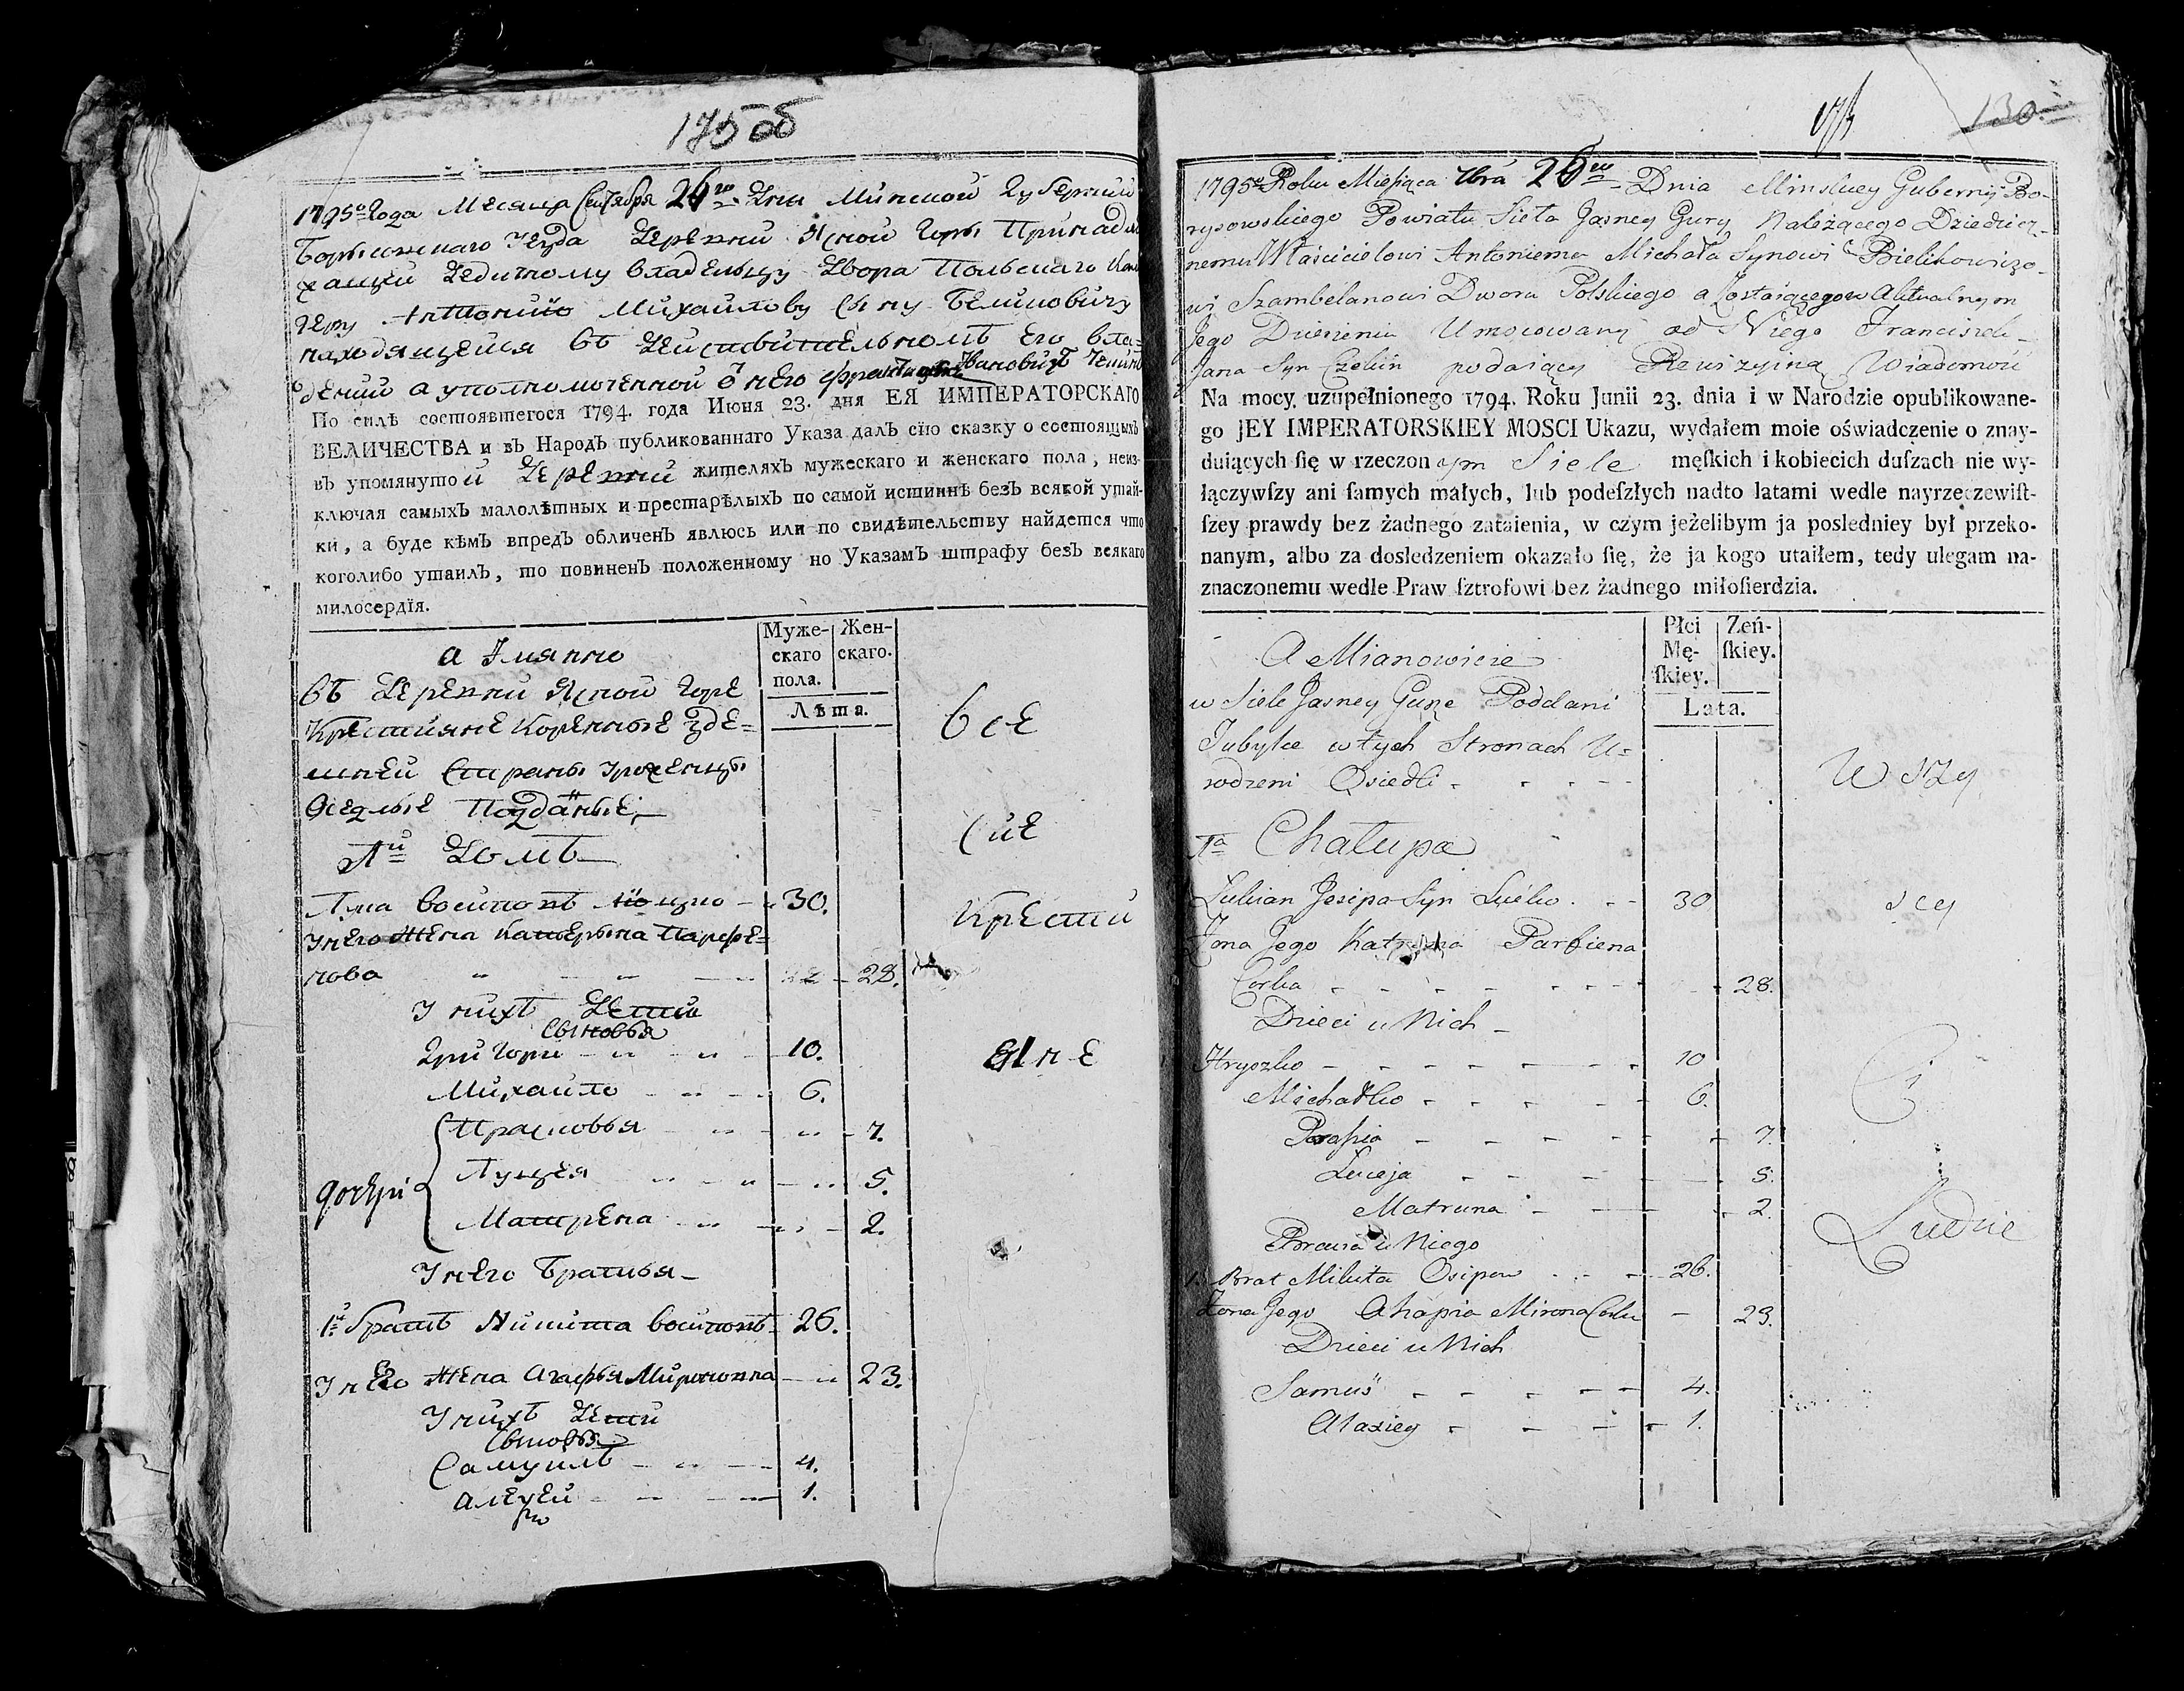 175 об
1795го Года Месяца Сентября 26го Дня Минской Губернии
Борисовского Уезда Деревни Ясной Горы Принадле
жащей Дедичному владельцу Двора Польскаго Кам
геру Антонию Михайлову Сыну Беликовичу
находящейся въ Действительномъ Его вла=
дении а уполномоченной о него Францишекъ Ивановичъ
По силѣ состоявшегося 1794. года Июня 23. дня ЕЯ ИМПЕРАТОРСКАГО
ВЕЛИЧЕСТВА и въ Народъ публикованнаго Указа далъ сїю сказку о состоящихъ
въ упомянутой Деревни жителяхъ мужескаго и женскаго пола, неиз-
ключая самыхъ малолѣтныхъ и престарѣлыхъ по самой истиннѣ безъ всякой утай-
ки, а буде кѣмъ впредъ обличенъ явлюсь или по свидѣтельству найдется что
коголибо утаилъ, то повиненъ положенному по Указамъ штрафу безъ всякаго
милосердїя.
а Імянно
Муже-скаго пола. Жен-скаго.
Лѣта.
въ Деревни Ясной Горе
Крестияне Коренные Зде=
шней Стораны Уроженцы
Оседлые Подданные
1й Домъ
Восиповъ 30.
У него Жена Катерына Парфе=
нова 28.
У нихъ Дети
Сыновья
Григори 10.
Михайло 6.
дочери
Прасковья 7.
Луцея 5.
Матрена 2.
У него Братья
1й братъ Никита Восиповъ 26.
У него Жена Агафья Мироновна 23.
У нихъ Дети
Сыновья
Самуилъ 4.
Алексей 1.
все
сие
Крести
яне
130
1795o Roku Miesiąca 7bra 26go Dnia Minskiey Guberny Bo-
rysowskiego Powiatu Sieła Jasney Gury Należącego Dziedicz-
nemu Właścicielowi Antoniemu Michała Synowi Bielikowiczo-
wi Szambelanowi Dworu Polskiego a Zostaiącego w Aktualnym
Jego Dzierżeniu Umocowany od Niego Franciszek
Jana Syn podaiący Rewizyiną Wiadomość
Na mocy uzupełnionego 1794. Roku Junii 23. dnia i w Narodzie opublikowane-
go JEY IMPERATORSKIEY MOSCI Ukazu, wydałem moie oświadczenie o znay-
duiących ſię w rzeczonym Siele męſkich i kobiecich duſzach nie wy-
łączywſzy ani ſamych małych, lub podeſzłych nadto latami wedle nayrzeczewiſt-
ſzey prawdy bez żadnego zataienia, w czym jeżelibym ja posledniey był przeko-
nanym, albo za dosledzeniem okazało ſię, że ja kogo utaiłem, tedy ulegam na-
znaczonemu wedle Praw ſztrofowi bez żadnego miłoſierdzia.
A Mianowicie
Płci Mę-ſkiey. Zeń-ſkiey.
Lata.
w Siele Jasney Gurze Poddani
w tych Stronach U=
rodzeni Osiedli
1a Chałupa
Łukian Josipa Syn 30
Żona Jego Katryna Parfiena
Corka 28.
Dzieci u Nich
Hryszko 10
Michałko 6.
Parasia 7.
Łuceja 5.
Matruna 2.
Bracia u Niego
1. Brat Mikita Osipow 26.
Żona Jego Ahapia Mirona Corka 23.
Dzieci u Nich
Samuś 4.
Alaxiey 1.
Wszy
scy
Ci
Ludzie